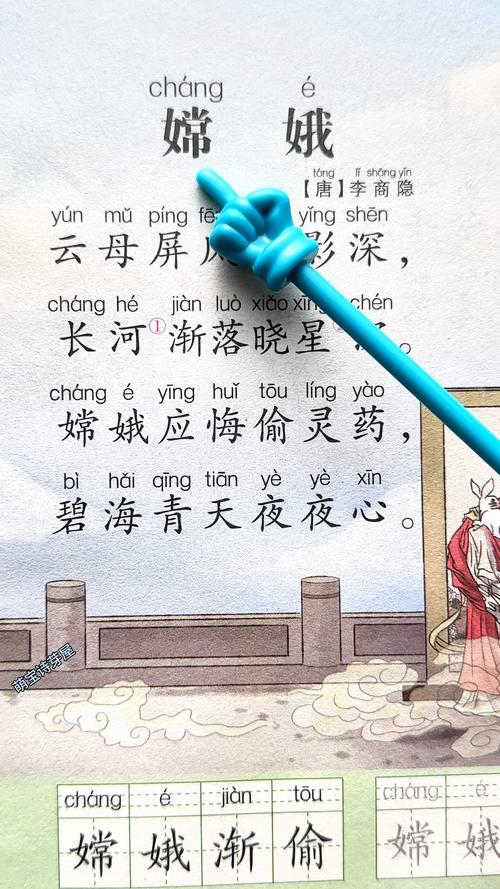 cháng é
嫦娥
táng lǐ shāng yǐn
【唐】李商隐
yún mǔ píng yǐng shēn
云母屏影深，
cháng hé jiàn luò xiǎo chén
长河①渐落晓星。
cháng é yīng huǐ tōu líng yào
嫦娥应悔偷灵药，
bì hǎi qīng tiān yè yè xīn
碧海青天夜夜心。
萌宝诗芽屋
cháng é jiàn tōu cháng é
嫦娥渐偷 嫦娥